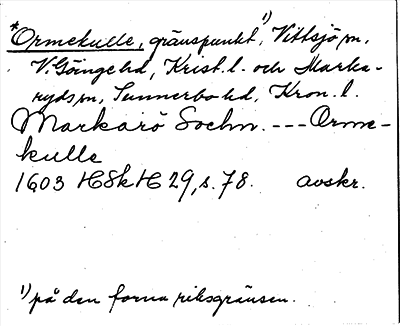 *Ormekulle, gränspunkt¹⁾, Vittsjö sn,
V. Göinge hd, Krist. l. och Marka-
ryds sn, Sunnerbo hd, Kron. l.
Markarö Sochn. --- Orme-
kulle
1603 HSkH 29, s. 78. avskr.
¹⁾ på den forna riksgränsen.